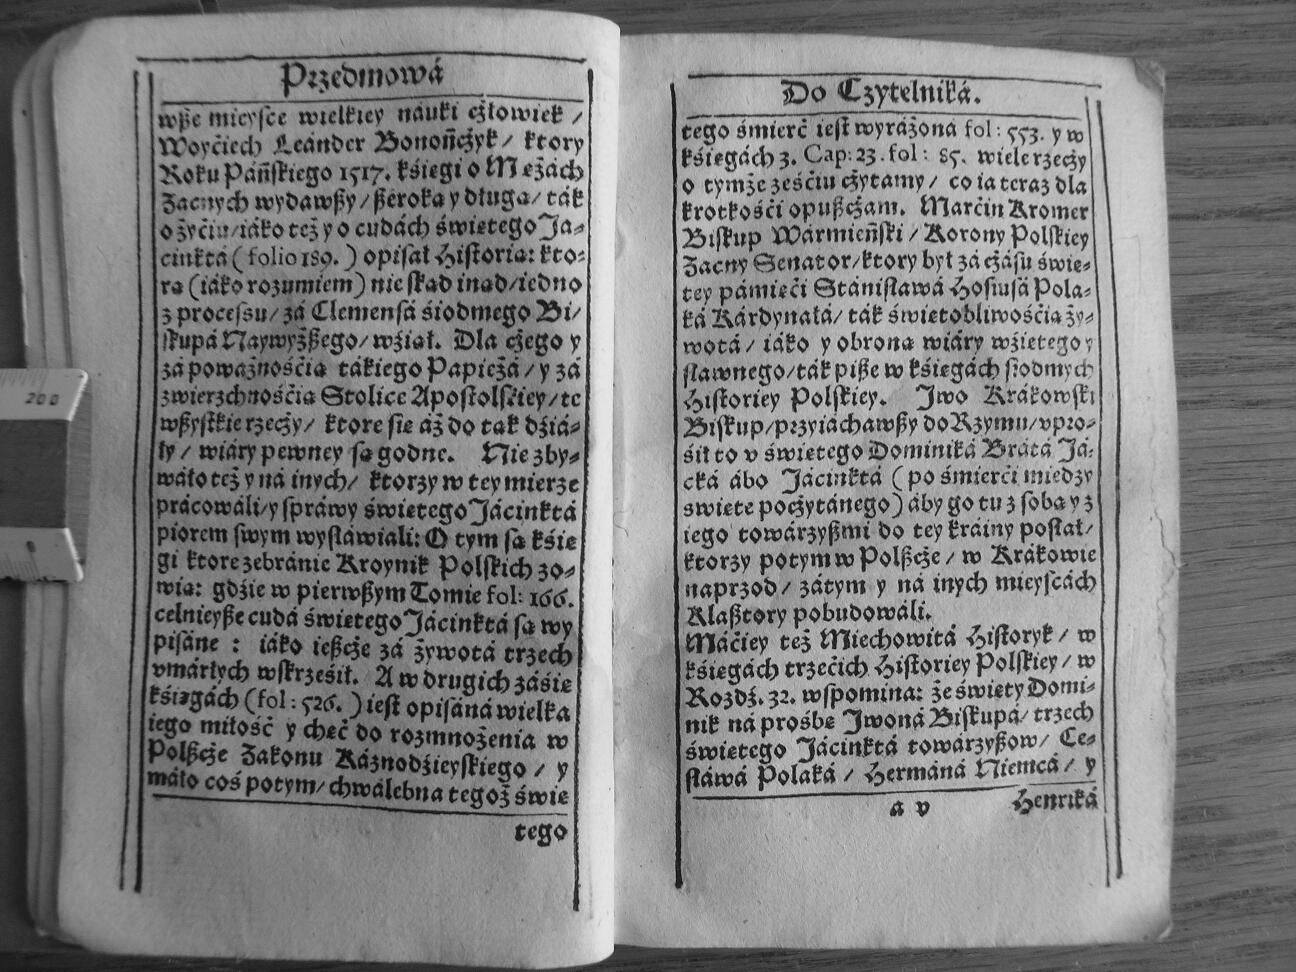 Przedmowá
wße mieysce wielkiey náuki cżłowiek /
Woyćiech Leánder Bonoñcżyk / ktory
Roku Páñskiego 1517. kśięgi o Mężách
Zacnych wydawßy / ßeroką y długą / ták
o żyćiu / iáko też y o cudách świętego Já⸗
cinktá ( folio 189. ) opisał Historią: kto⸗
rą (iáko rozumiem) nie skąd inąd / iedno
z processu / zá Clemensá śiodmego Bi /
skupá Naywyżßego / wźiął. Dla cżego y
zá poważnośćią tákiego Papieżá / y zá
zwierzchnośćią Stolice Apostolskiey / te
wßystkie rzecży / ktore się áż do tąd dźiá⸗
ły / wiáry pewney są godne. Nie zby⸗
wáło też y ná inych / ktorzy w tey mierze
prácowáli / y spráwy świętego Jácinktá
piorem swym wysławiáli: O tym są kśię
gi ktore zebránie Kroynik Polskich zo⸗
wią: gdźie w pierwßym Tomie fol: 166.
celnieyße cudá świętego Jácinktá są wy
pisáne : iáko ießcże zá żywotá trzech
vmárłych wskrześił. A w drugich záśię
kśięgách (fol: 526. ) iest opisáná wielka
iego miłość y chęć do rozmnożenia w
Polßcże Zakonu Káznodźieyskiego / y
máło coś potym / chwálebna tegoż świę
tego
Do Czytelniká.
tego śmierć iest wyráżoná fol: 553. y w
kśięgách 3. Cap: 23. fol: 85. wiele rzecży
o tymże ześćiu cżytamy / co ia teraz dla
krotkośći opußcżam. Marćin Kromer
Biskup Wármieñski / Korony Polskiey
Zacny Senator / ktory był zá cżásu świę⸗
tey pámięći Stánisławá Hosiusá Polá⸗
ká Kárdynałá / ták świętobliwośćią ży⸗
wotá / iáko y obroną wiáry wźiętego y
sławnego / ták piße w kśięgách siodmych
Historiey Polskiey. Jwo Krákowski
Biskup / przyiáchawßy do Rzymu / vpro⸗
śił to v świętego Dominiká Brátá Já⸗
cká ábo Jácinktá ( po śmierći między
święte pocżytánego ) áby go tu z sobą y z
iego towárzyßmi do tey kráiny posłał /
ktorzy potym w Polßcże / w Krákowie
naprzod / zátym y ná inych mieyscách
Klaßtory pobudowáli.
Máćiey też Miechowitá Historyk / w
kśięgách trzećich Historiey Polskiey / w
Rozdź. 32. wspomina: że święty Domi⸗
nik ná prośbę Jwoná Biskupá / trzech
świętego Jácinktá towárzyßow / Ce⸗
sławá Polaká / Hermáná Niemcá / y
a v Henriká